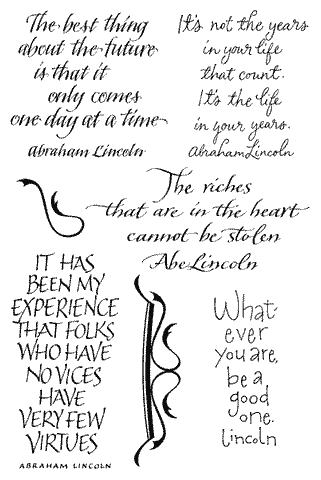 The best thing
about the future
is that it
only comes
one day at a time
Abraham Lincoln
It's not the years
in your life
that count.
It's the life
in your years.
Abraham Lincoln
The riches
that are in the heart
cannot be stolen
Abe Lincoln
IT HAS
BEEN MY
EXPERIENCE
THAT FOLKS
WHO HAVE
NO VICES
HAVE
VERY FEW
VIRTUES
ABRAHAM LINCOLN
What-
ever
you are,
be a
good
one.
Lincoln